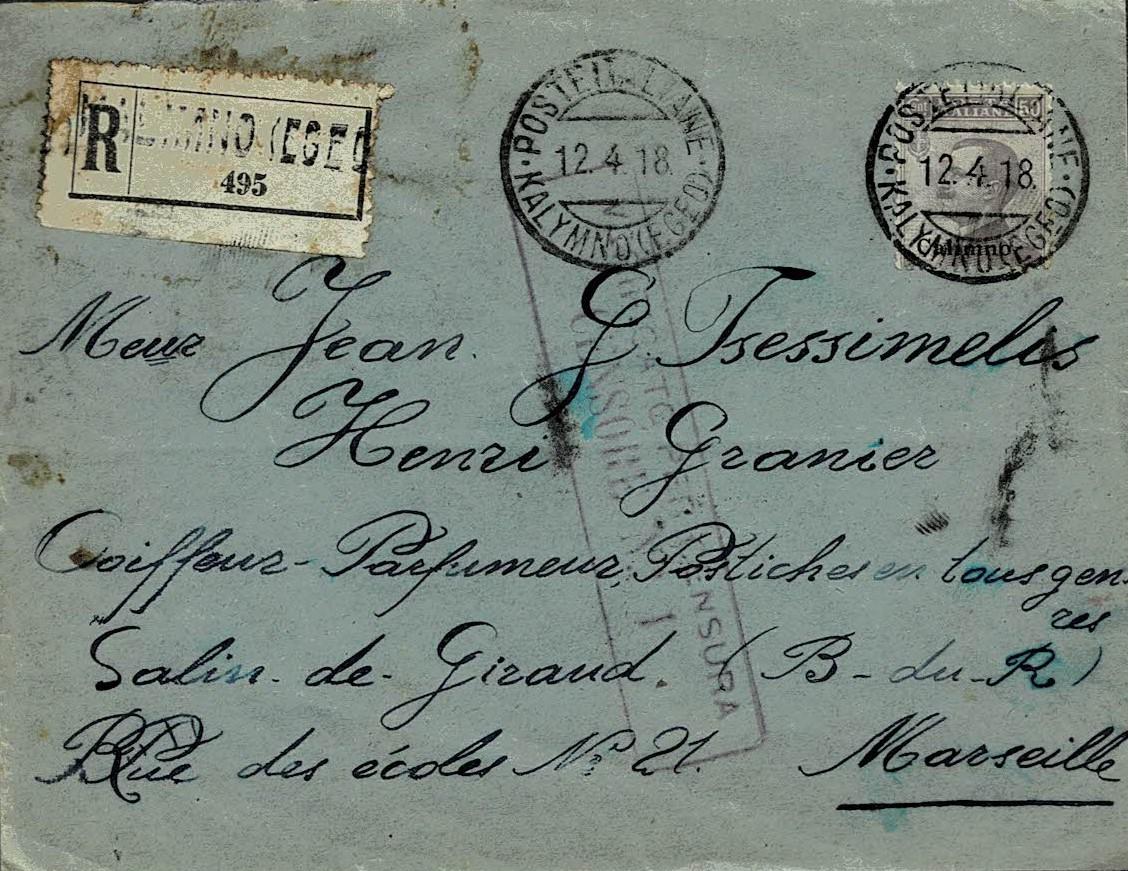 R
CALIMNO (EGEO
495
POSTE ITALIANE
12.4.18.
KALYMNO (EGEO)
POSTE ITALIANE
12.4.18.
KALYMNO (EGEO)
50
Calimno
Meur Jean. G. Tsessimelis
Henri Granier
Coiffeur-Parfumeur Postiches en tous gen
res
Salin-de-Giraud. (B-du-R)
Rue des écoles No 21. Marseille
CENSURA